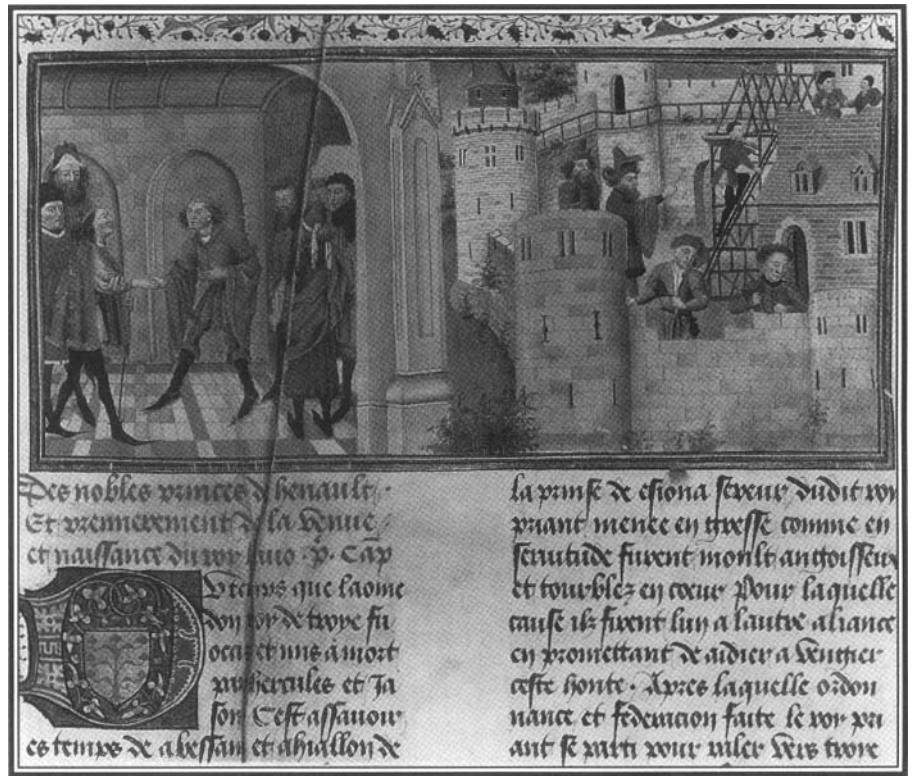 Des nobles princes d henault
Et premierement de la venue
et naissance du roy . p. Cap
u temps que laome
don roy de troye fu
ocar et mis a mort
par hercules et Ja
son Cest assavoir
es temps de abessan et de
la prinse de esiona seveur dudit roy
priant menee en gresse comme en
servitude furent moult angoisseux
et tourblez en cœur Pour laquelle
cause ilz firent lun a lautre aliance
en promettant de aidier a vengier
ceste honte . Apres laquelle ordon
nance et federacion faite le roy pri
ant se parti pour aler vers troye